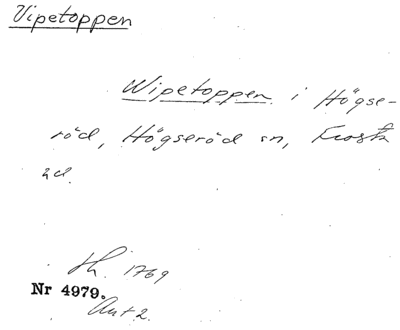 Vipetoppen
Wipetoppen i Högse-
röd, Högseröd sn, Frosta
hd.
h. 1769
Nr 4979.
Akt 2.